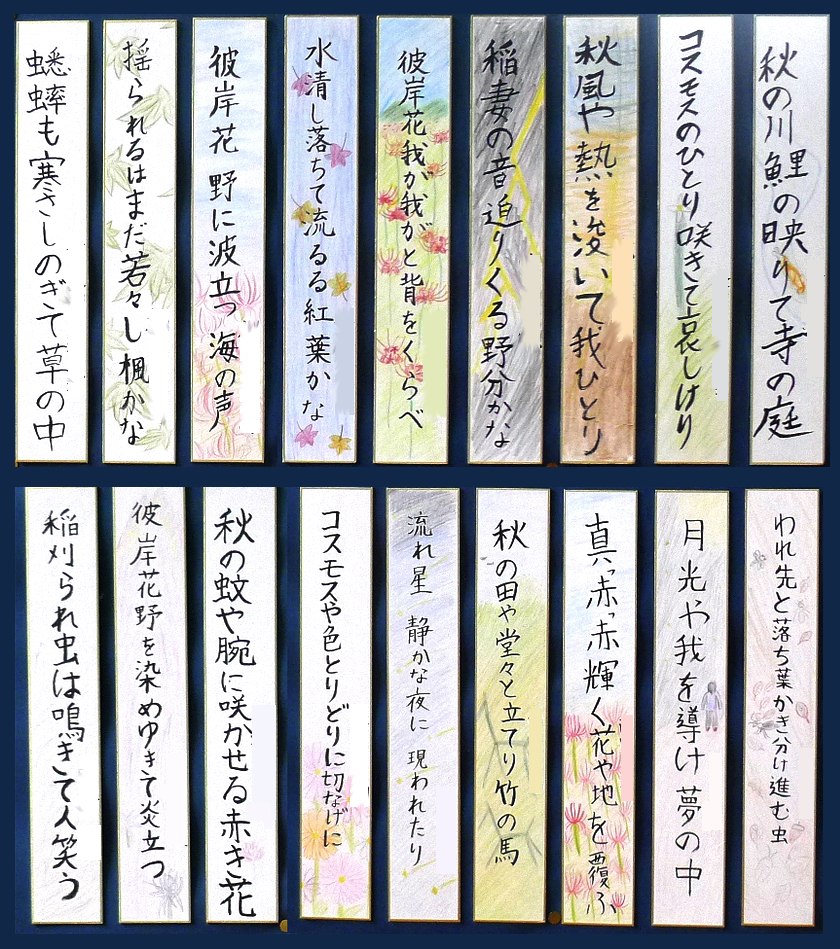 秋の川鯉の映りて寺の庭
コスモスのひとり咲きて哀しけり
秋風や熱を泼いて我ひとり
稲妻の音迫りくる野分かな
彼岸花我が我がと背をくらべ
水清し落ちて流るる紅葉かな
彼岸花 野に波立つ 海の声
揺られるはまだ若々し楓かな
蟋蟀も寒さしのぎて草の中
われ先と落ち葉かき分け進む虫
月光や我を導け夢の中
真っ赤っ赤輝く花や地を覆ふ
秋の田や堂々と立てり竹の馬
流れ星 静かな夜に 現われたり
コスモスや色とりどりに切なげに
秋の蚊や腕に咲かせる赤き花
彼岸花野を染めゆきて炎立つ
稲刈られ虫は鳴きて人笑う